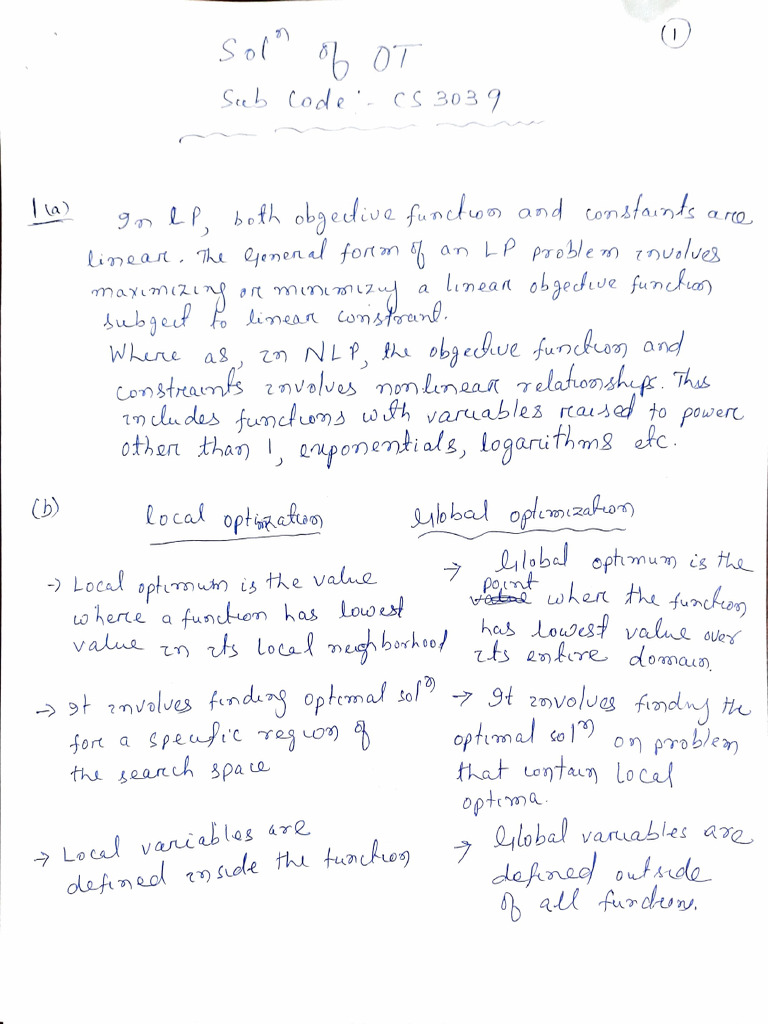 1
Solⁿ of OT
Sub Code :- CS 3039
1(a) In LP, both objective function and constaints are
linear. The General form of an LP problem involves
maximizing or minimizing a linear objective function
subject to linear constraint.
Where as, in NLP, the objective function and
constraints involves nonlinear relationships. This
includes functions with variables raised to power
other than 1, exponentials, logarithms etc.
(b) Local optimization
→ Local optimum is the value
where a function has lowest
value in its local neighborhood
→ It involves finding optimal solⁿ
for a specific region of
the search space
→ Local variables are
defined inside the function
Global optimization
→ Global optimum is the
point
value when the function
has lowest value over
its entire domain.
→ It involves finding the
optimal solⁿ on problem
that contain local
optima.
→ Global variables are
defined outside
of all functions.